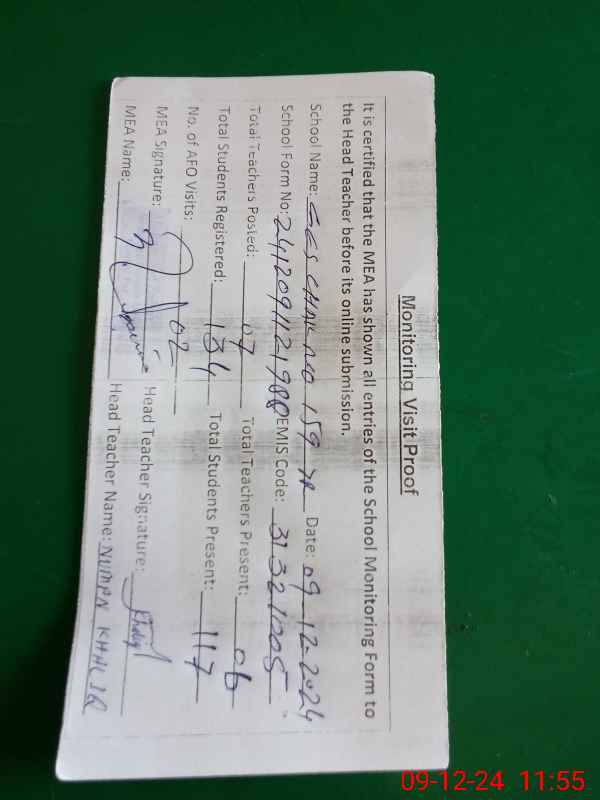 Monitoring Visit Proof
It is certified that the MEA has shown all entries of the School Monitoring Form to
the Head Teacher before its online submission.
School Name: GES CHAK NO 159 7R Date: 09-12-2024
School Form No: EMIS Code: 31321005
Total Teachers Posted: 07 Total Teachers Present: 06
Total Students Registered: 134 Total Students Present: 117
No. of AFO Visits: 02
MEA Signature: Head Teacher Signature: Khaliq
MEA Name: Head Teacher Name: NUMAN KHALIQ
09-12-24 11:55